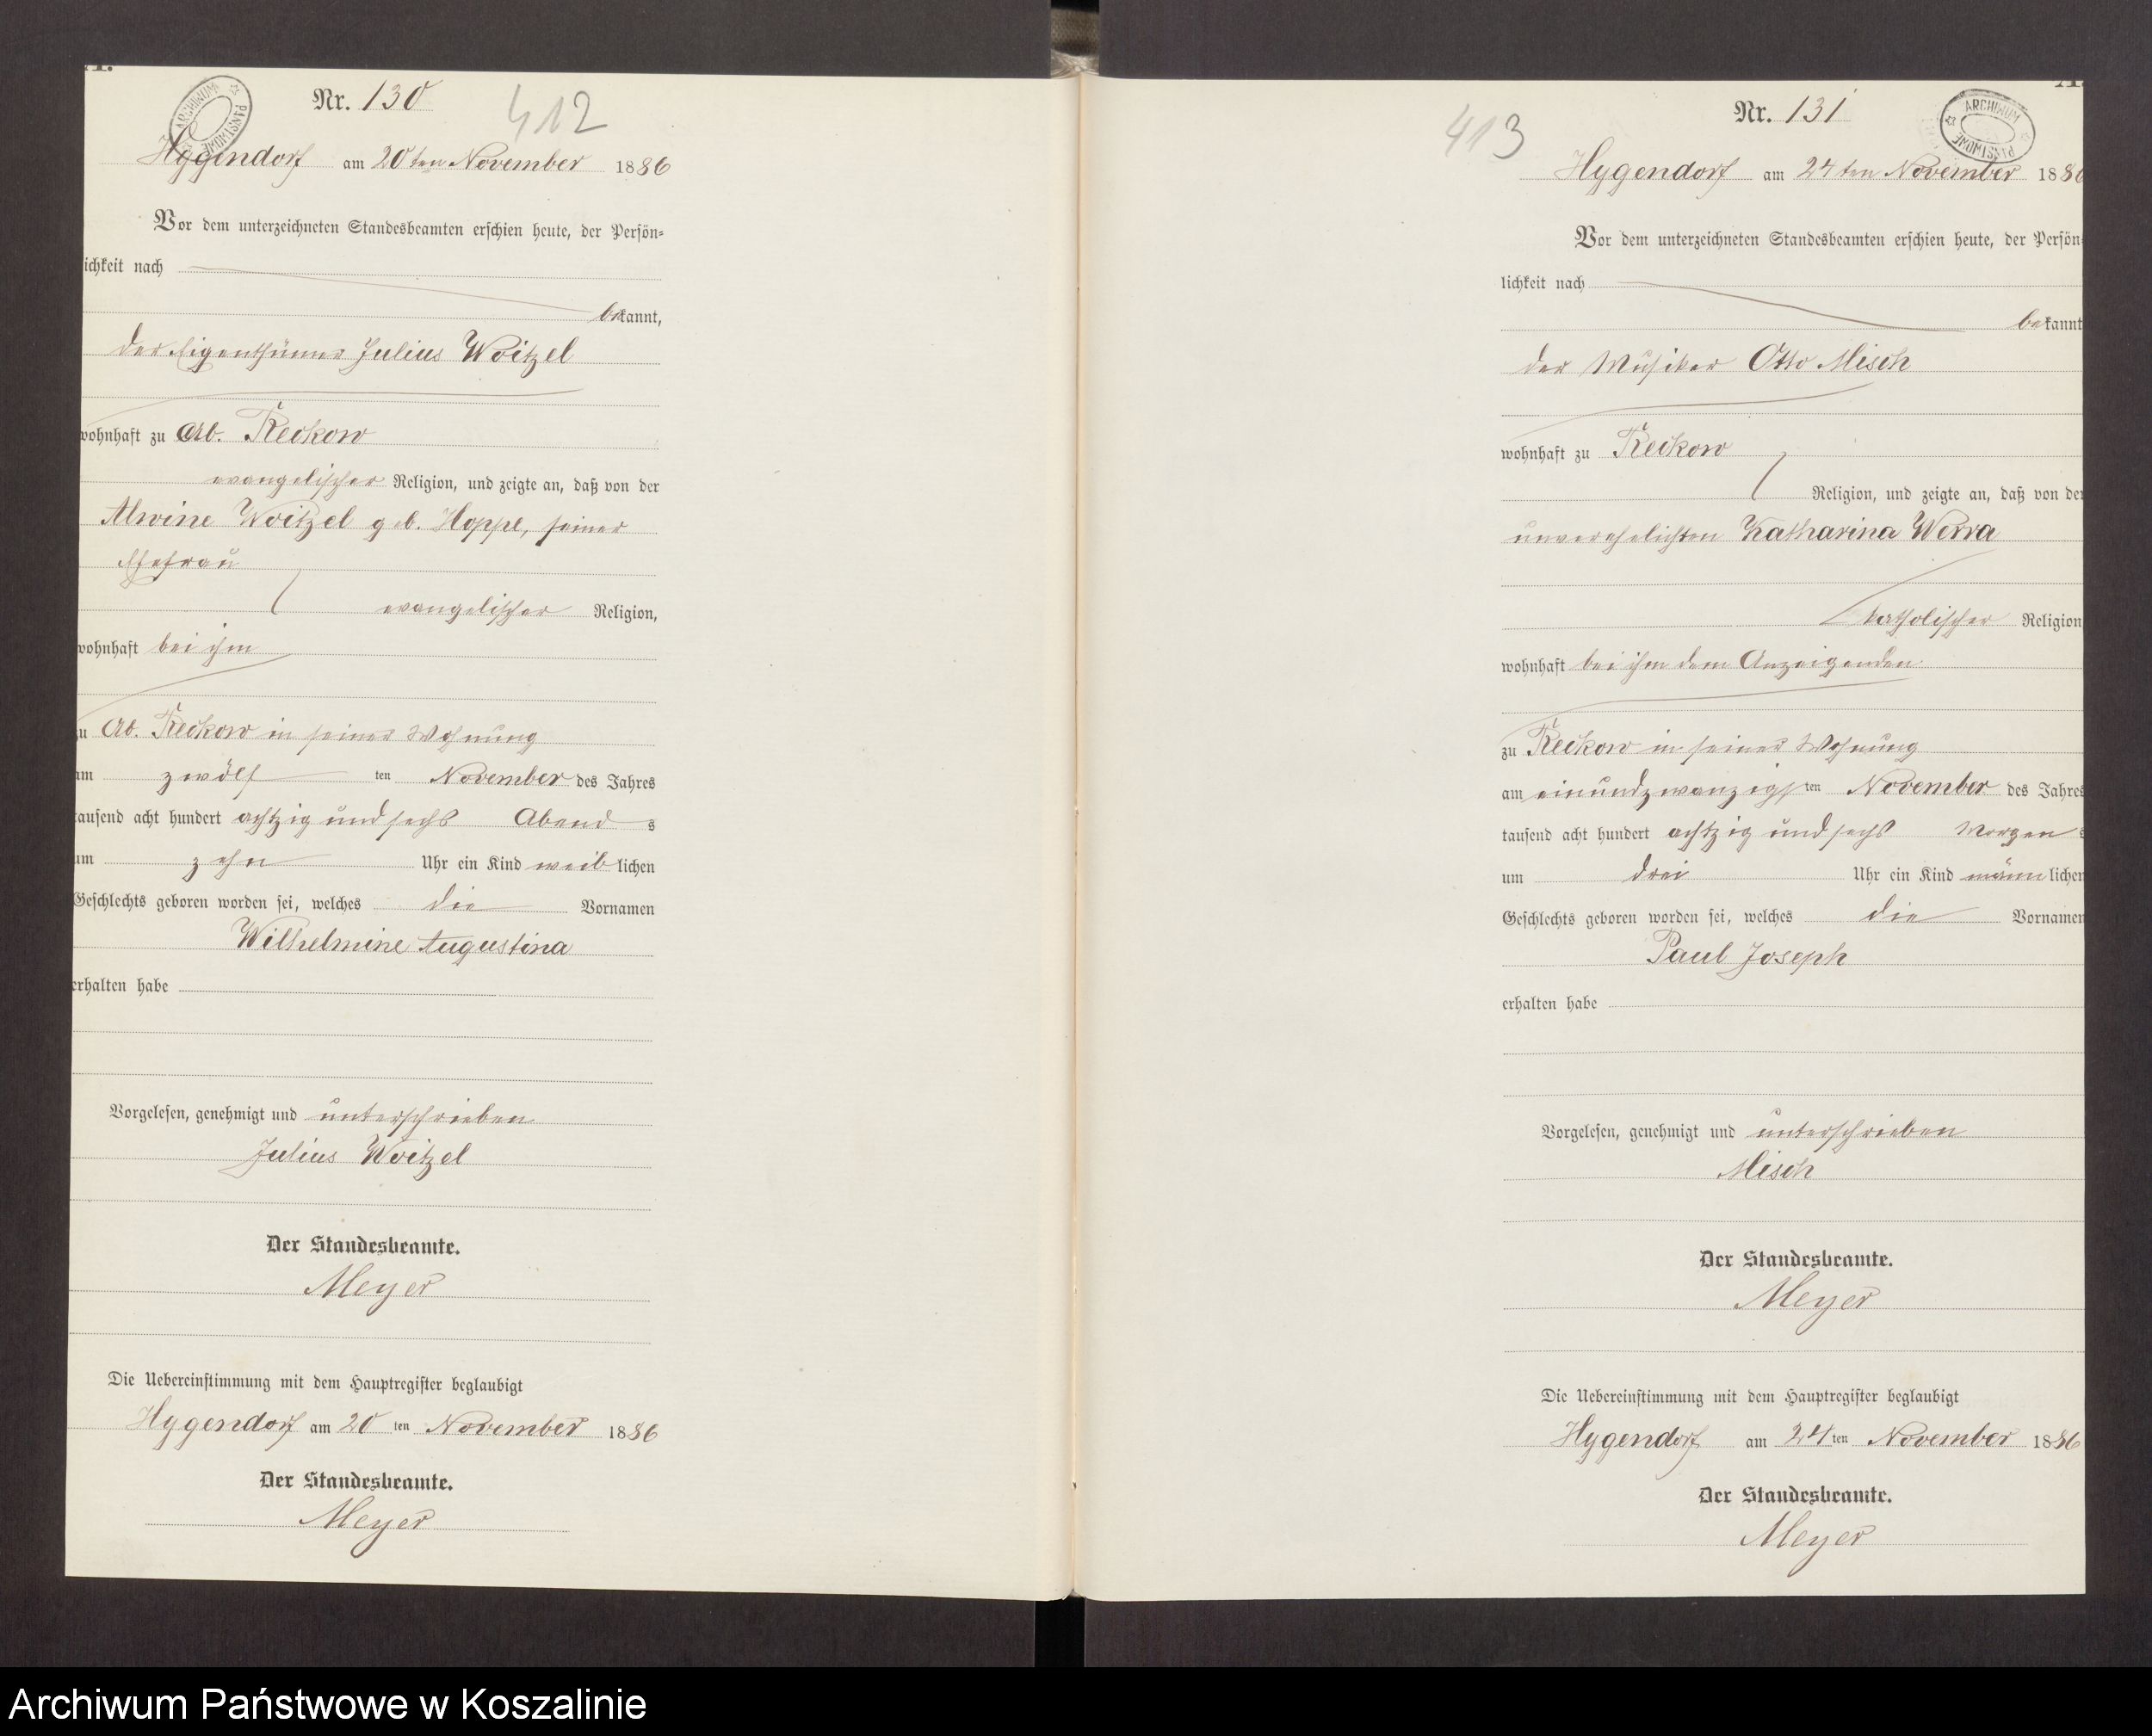 Nr. 130
412
ARCHIWUM PAŃSTWOWE
Hygendorf am 20ten November 1886
Vor dem unterzeichneten Standesbeamten erschien heute, der Persön-
ichkeit nach
bekannt,
der Eigenthümer Julius Woitzel
wohnhaft zu Ab. Reckow
evangelischer Religion, und zeigte an, daß von der
Alwine Woitzel geb. Hoppe, seiner
Ehefrau
evangelischer Religion,
wohnhaft bei ihm
zu Ab. Reckow in seiner Wohnung
am zwölf ten November des Jahres
tausend acht hundert achtzig und sechs Abend s
um zehn Uhr ein Kind weiblichen
Geschlechts geboren worden sei, welches die Vornamen
Wilhelmine Augustina
erhalten habe
Vorgelesen, genehmigt und unterschrieben
Julius Woitzel
Der Standesbeamte.
Meyer
Die Uebereinstimmung mit dem Hauptregister beglaubigt
Hygendorf am 20 ten November 1886
Der Standesbeamte.
Meyer
413
Nr. 131
ARCHIWUM PAŃSTWOWE
Hygendorf am 24ten November 1886
Vor dem unterzeichneten Standesbeamten erschien heute, der Persön-
lichkeit nach
bekannt
der Musiker Otto Misch
wohnhaft zu Reckow
Religion, und zeigte an, daß von der
unverehelichten Katharina Werra
katholischer Religion
wohnhaft bei ihm dem Anzeigenden
zu Reckow in seiner Wohnung
am einundzwanzigsten November des Jahres
tausend acht hundert achtzig und sechs Morgen s
um drei Uhr ein Kind männlichen
Geschlechts geboren worden sei, welches die Vornamen
Paul Joseph
erhalten habe
Vorgelesen, genehmigt und unterschrieben
Misch
Der Standesbeamte.
Meyer
Die Uebereinstimmung mit dem Hauptregister beglaubigt
Hygendorf am 24 ten November 1886
Der Standesbeamte.
Meyer
Archiwum Państwowe w Koszalinie